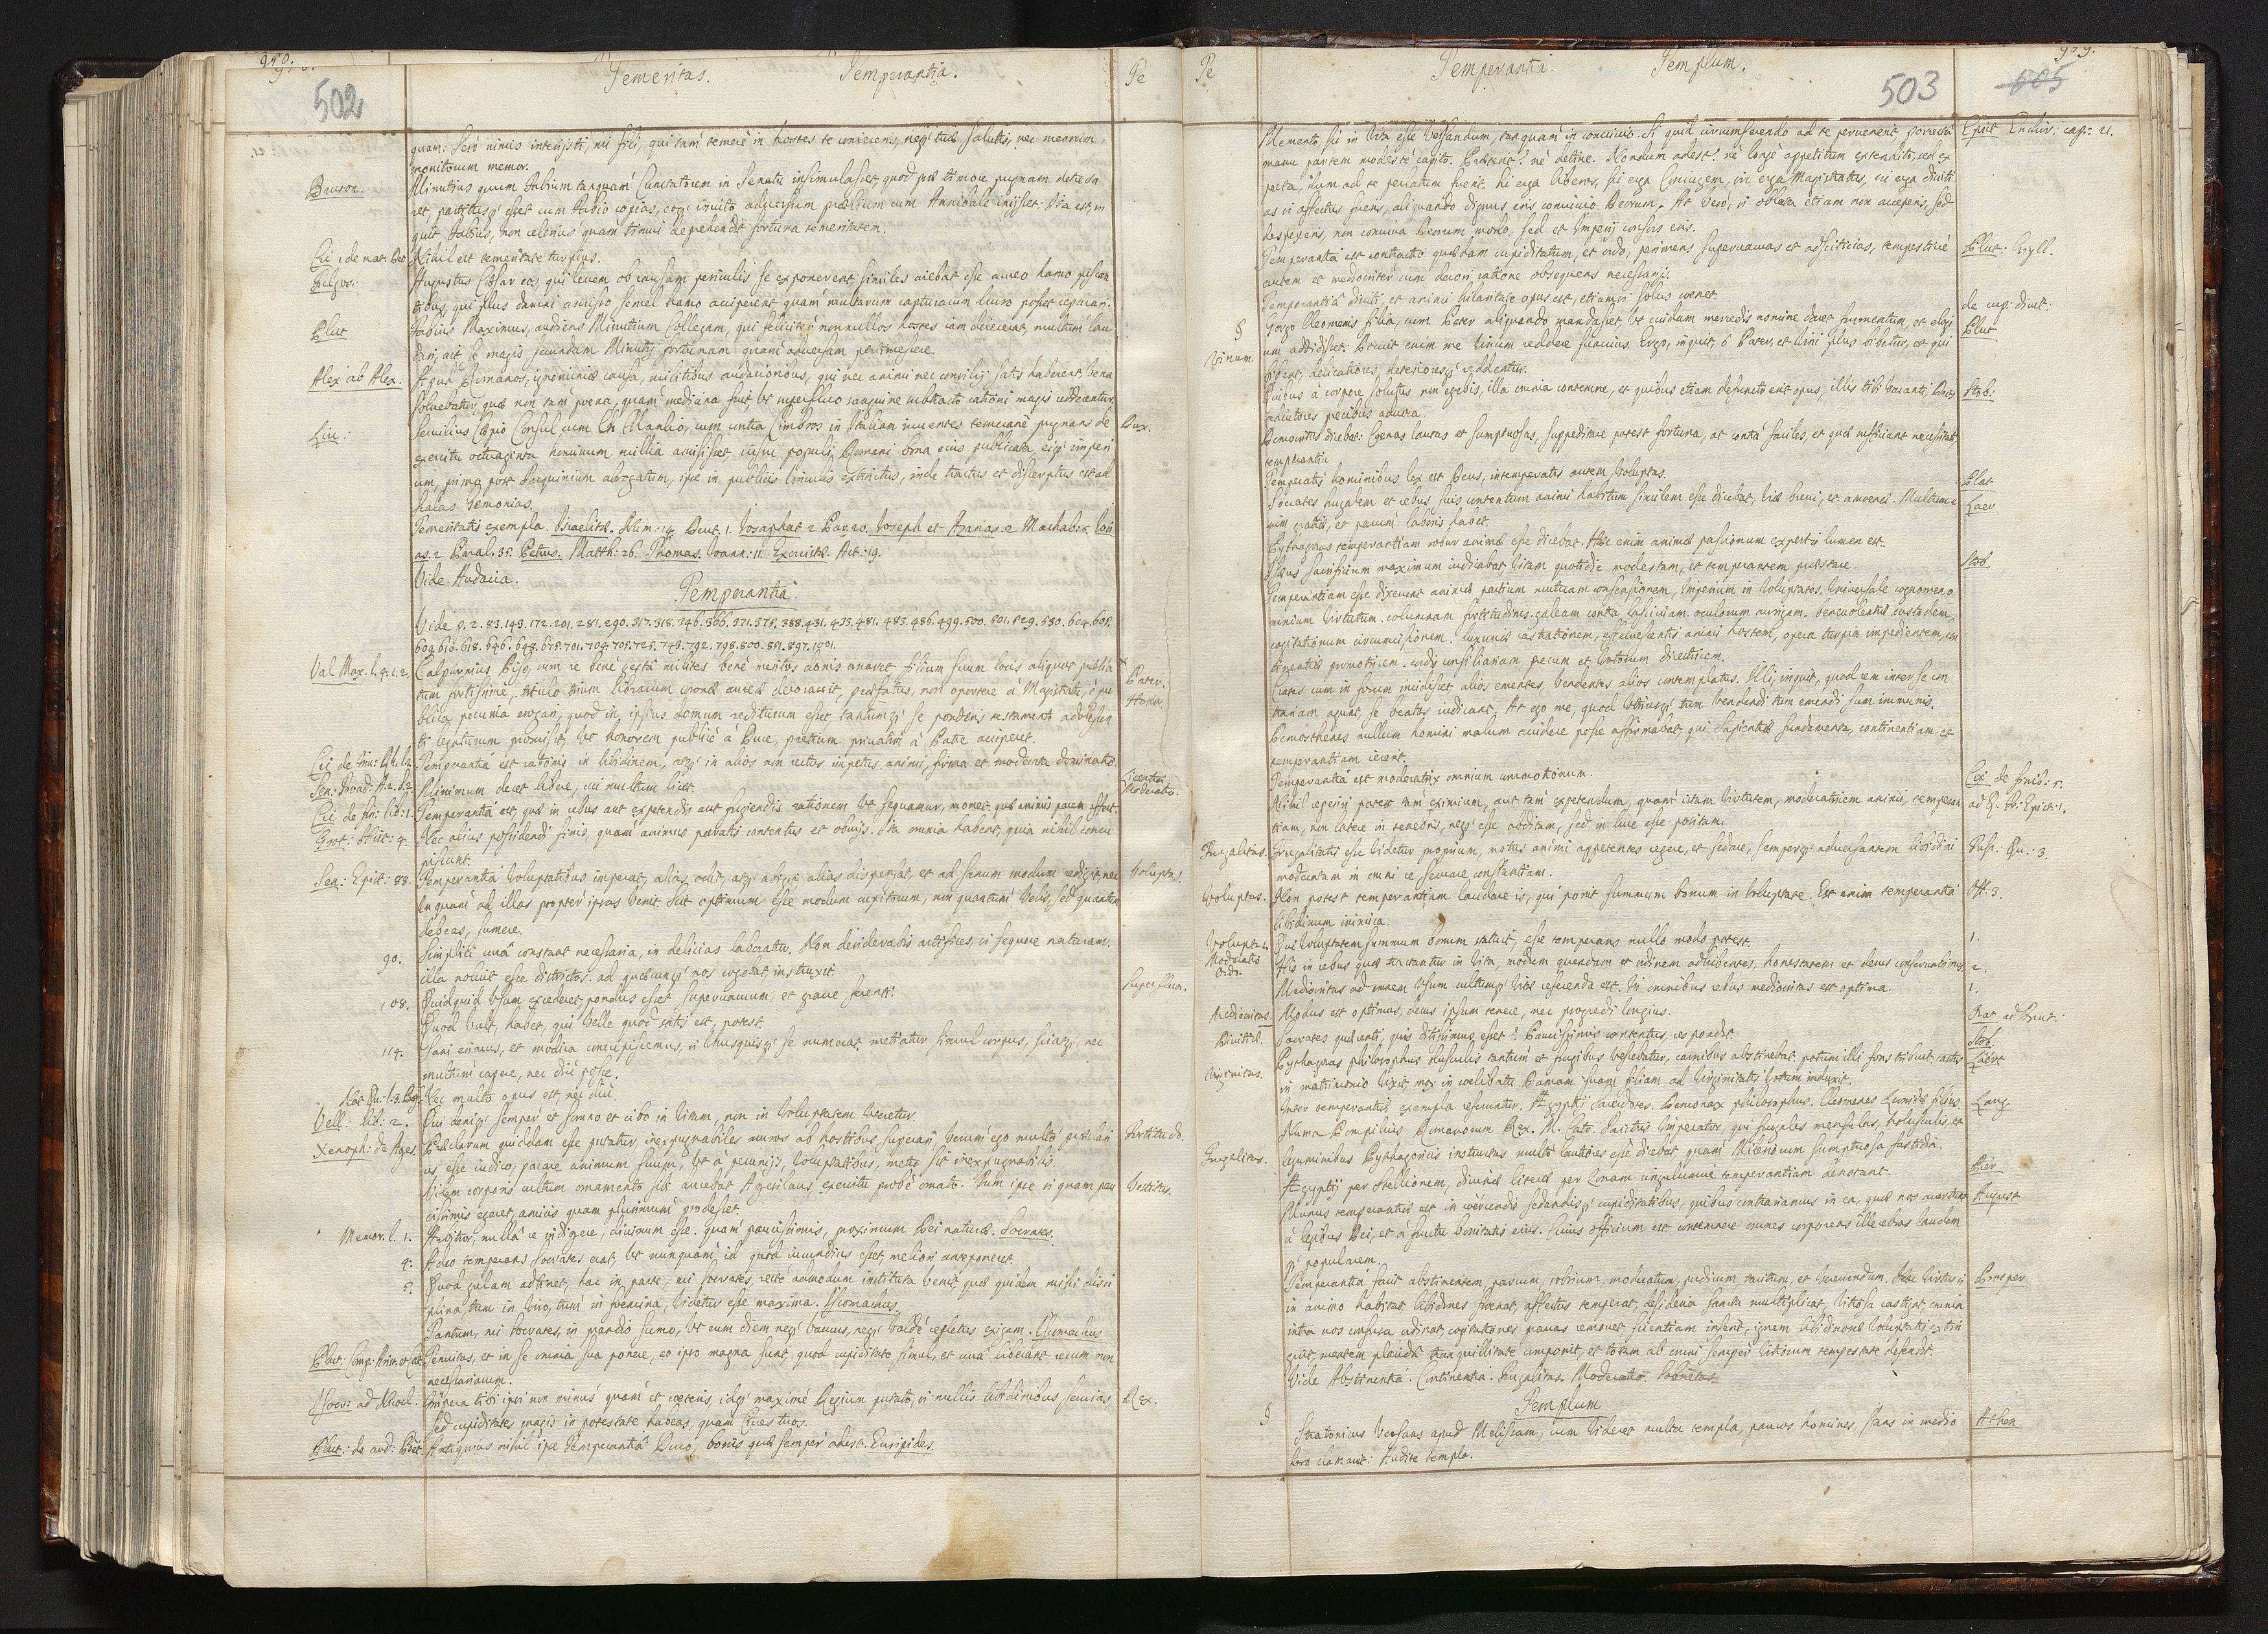 502
Temeritas. Temperantia.
Te
quam: Sero nimis intellexisti, mi fili, qui tam temere in hostes te conieceris, neq; tuae salutis, nec meorum
monitorum memor.
Bruson. Minutius quum Fabium tanquam Cunctatorem in Senatu insimulasset, quod prae timore pugnam detrecta
ret, partitusq; esset cum Fabio copias, eoq; inuito aduersum praelium cum Annibale inijsset: Ita est, in
quit Fabius, non celerius quam timui deprehendit fortuna temeritatem.
Cic: de nat. Deo Nihil est temeritate turpius.
Fulgos: Augustus Caesar eos, qui leuem ob causam periculis se exponerent, similes aiebat esse aureo hamo piscan
tibus, qui plus damni amisso semel hamo acciperent quam multarum capturarum lucro posset reparari.
Plut Fabius Maximus, audiens Minutium Collegam, qui feliciter nonnullos hostes iam deiecerat, multum lau
dari, ait se magis secundam Minutij fortunam quam aduersam pertimescere.
Alex ab Alex. Apud Romanos, ignominiae causa, militibus audacioribus, qui nec animi nec consilij satis haberent, vena
soluebatur, quae non tam poena, quam medicina fuit, vt superfluo sanguine subtracto rationi magis redderentur.
Liu: Seruilius Caepio Consul cum Cn Manlio, cum contra Cimbros in Italiam irruentes temerarie pugnans de Dux.
exercitu octuaginta hominum millia amisisset iussu populi Romani bona eius publicata, eiq; imperi
um, primo post Tarquinium abrogatum, ipse in publicis vinculis extinctus, inde tractus et discerptus est ad
scalas Gemonias.
Temeritatis exempla. Israelitae. Num: 14. Deut. 1. Iosaphat 2 Par. 20. Ioseph et Azarias. 2 Machab: 5. Iosi
as. 2 Paral. 35. Petrus. Matth: 26. Thomas. Ioann: 11. Exorcistae. Act: 19.
Vide Audacia.
Temperantia.
Vide p. 2. 83. 143. 172. 201. 281. 290. 317. 318. 346. 366. 371. 375. 388. 431. 433. 481. 483. 486. 499. 500. 501. 529. 530. 604. 605.
609. 610. 618. 646. 648. 675. 701. 704. 705. 725. 749. 792. 798. 800. 851. 897. 1001.
Val Max. l. 4. c. 2. Calpurnius Piso, cum re bene gesta milites bene meritos donis ornaret, filium suum locis aliquot praelia
tum fortissime, titulo trium librarum coronae aureae decorauit, praefatus, non oportere a Magistratu, e pu Pater.
blica pecunia erogari, quod in ipsius domum rediturum esset, tantumq; se ponderis testamento adolescen Honor.
ti legaturum promisit, vt honorem publice a Duce, pretium priuatim a Patre acciperet.
Temperantia est rationis in libidinem, atq; in alios non rectos impetus animi, firma et moderata dominatio.
Minimum decet libere, cui multum licet. Licentia. Moderatio.
Cic de fin: lib: 1. Temperantia est, quae in rebus aut expetendis aut fugiendis rationem vt sequamur, monet, quae animis pacem affert.
Nec alius possidendi finis, quam animus paratis contentus et obuijs. Ita omnia habent, quia nihil concu
piscunt.
Sen: Epist: 88. Temperantia voluptatibus imperat, alias odit, atq; abigit, alias dispensat, et ad sanum modum redigit, nec Voluptas.
vnquam ad illas propter ipsas venit. Scit optimum esse modum cupitorum, non quantum velis, sed quantum
debeas, sumere.
90. Simplici cura constant necessaria, in delicias laboratur. Non desiderabis artifices, si sequere naturam.
illa noluit esse districtos. ad quaecunq; nos cogebat, instruxit.
108. Quidquid vsum excederet, pondus esset superuacuum, et graue ferenti. Superflua.
Quod vult, habet, qui velle quod satis est, potest.
114. Sani erimus, et modica concupiscemus, si vnusquisq; se numeret, metiatur simul corpus, sciatq; nec
multum capere, nec diu posse.
Nat Qu: l. 3. Nec multo opus est, nec diu.
Vell: lib: 2. Qui deniq; semper et somno et cibo in vitam, non in voluptatem vteretur.
Xenoph: de Ages. Praeclarum quiddam esse putatur, inexpugnabiles muros ab hostibus superari, verum ego multo praeclari Fortitudo.
us esse iudico, parare animum suum, vt a pecunijs, voluptatibus, metu sit inexpugnabilis.
Idem corporis cultum ornamento sibi ducebat Agesilaus exercitu probe ornato. Dum ipse si quam pau Vestitus.
cissimis egeret, amicis quam plurimum prodesset.
Memor. l. 1. Arbitror, nulla re indigere, diuinum esse. quam paucissimis, proximum Dei naturae. Socrates.
4. Adeo temperans Socrates erat, vt nunquam, id quod iucundius esset meliori anteponeret.
5. Quod gulam adtinet, hac in parte, mi Socrates, recte admodum instituta venit, quae quidem mihi disci
plina tum in viro, tum in foemina, videtur esse maxima. Ischomachus.
Tantum, mi Socrates, in prandio sumo, vt eum diem neq; vacuus, neq; valde repletus exigam. Ischomachus
Tenuitas, et in se omnia sua ponere, eo ipso magna sunt, quod cupiditate simul, et cura liberant rerum non
necessariarum.
Isocr: ad Nicocl. Impera tibi ipsi non minus quam et caeteris, idq; maxime Regium putato, si nullis libidinibus seruias, Rex.
sed cupiditates magis in potestate habeas, quam Ciues tuos.
Plut: de aud: Poet. Antiquius nihil ipse temperantia Duco, bonis quae semper adest. Euripides.
Te
Temperantia Templum.
503
605
Memento, sic in vita esse versandum, tanquam in conuiuio. Si quid circumferendo ad te peruenerit, porrecta Epict Enchir: cap: 21.
manu partem modeste capito. Praeterit? ne detine. Nondum adest? ne longe appetitum extendito, sed ex
pecta, dum ad te perlatum fuerit. Si erga liberos, sic erga Coniugem, sic erga Magistratus, sic erga diuiti
as si affectus fueris, aliquando dignus eris conuiuio Deorum. At vero, si oblata etiam non acceperis, sed
despexeris, non conuiua Deorum modo, sed et Imperij consors eris.
Temperantia est contractio quaedam cupiditatum, et ordo, perimens superuacuas et adsciticias, tempestiue Plut: Gryll.
autem et mediocriter cum decori ratione obsequens necessarijs.
Temperantia diuiti, et animi hilaritate opus est, etiamsi solus coenet. de cup: diuit:
§ Gorgo Cleomenis filia, cum Pater aliquando mandasset, vt cuidam mercedis nomine daret frumentum, et elogi Plut
Vinum. um addidisset: Docuit enim me vinum reddere suauius. Ergo, inquit, o Pater, et vini plus bibetur, et qui
bibent, delicatiores, deterioresq; reddentur.
Quibus a corpore solutus non egebis, illa omnia contemne, et quibus etiam defuncto erit opus, illis tibi vacanti, Deos Stob:
adiutores precibus aduoca.
Democritus dicebat: Coenas lautas et sumptuosas, suppeditare potest fortuna, at contra faciles, et quae sufficiant necessitati,
temperantia.
Temperatis hominibus lex est Deus, intemperatis autem voluptas. Plat
Socrates frugalem et rebus suis contentum animi habitum similem esse dicebat, viae breui, et amoenae. Multum e Laer
nim gratiae, et parum laboris habet.
Pythagoras temperantiam robur animae esse dicebat. Haec enim animae passionum expertis lumen est.
Idem sacrificium maximum iudicabat vitam quotidie modestam, et temperantem praestare. Stob.
Temperantiam esse dixerunt animae partium mutuam consensionem, Imperium in voluptates. Vniuersale cognomento
omnium virtutum. columnam fortitudinis. galeam contra lasciuiam. oculorum aurigam. beneuolentiae custodem,
cogitationum circumcisionem. luxuriae castrationem, efferuescentis animi hostem, opera turpia impedientem, con
tinentiae promotricem. cordis consiliariam, precum et votorum directricem.
Crates cum in forum incidisset alios ementes, vendentes alios contemplatus. Illi, inquit, quod rem inter se con
trariam agunt, se beatos iudicant. At ego me, quod vtriusq; tum vendendi tum emendi, sum immunis.
Demosthenes nullum homini malum accidere posse affirmabat, qui Sapientiae fundamenta, continentiam et
temperantiam iecerit.
Temperantia est moderatrix omnium commotionum. Cic de finib: 5.
Nihil reperiri potest tam eximium, aut tam expetendum, quam istam virtutem, moderatricem animi, tempera
tiam, non latere in tenebris, neq; esse abditam, sed in luce esse positam.
Frugalitas. Frugalitatis esse videtur proprium, motus animi appetentes regere, et sedare, semperq; aduersantem libidini Tusc: Qu: 3.
moderatam in omni re seruare constantiam.
Voluptas. Non potest temperantiam laudare is, qui ponit summum bonum in voluptate. Est enim temperantia Off: 3.
libidinum inimica.
Voluptas. Qui voluptatem summum bonum statuit, esse temperans nullo modo potest. 1.
Moderatio His in rebus quae tractantur in vita, modum quendam et ordinem adhibentes, honestatem et decus conseruabimus 2.
Ordo. Mediocritas ad omnem vsum cultumq; vitae referenda est. In omnibus rebus mediocritas est optima. 1.
Mediocritas. Modus est optimus, decus ipsum tenere, nec progredi longius. Orat ad Brut:
Diuitiae. Socrates quaerenti, quis ditissimus esset? Paucissimis contentus, respondit. Stob.
Virginitas. Pythagoras philosophus olusculis tantum et frugibus vescebatur, carnibus abstinebat. potum illi fons tribuit, castus Laert
in matrimonio vixit, mox in coelibatu. Damam suam filiam ad virginitatis votum induxit.
Inter temperantiae exempla referuntur. Aegyptij Sacerdotes. Demonax philosophus. Cleomenes filius. Lang
Numa Pompilius Romanorum Rex. M. Cato. Tacitus Imperator, qui frugales mensulas, holusculis, et
Frugalitas. leguminibus Pythagoricis instructas multo lautiores esse dicebat quam Milonum sumptuosa fastidia.
Aegyptij per Stellionem, diuinae literae per Zonam cingulumue temperantiam denotant. Pier
Munus temperantiae est in coercendis sedandisq; cupiditatibus, quibus contrahimur in ea, quae nos auertunt August
a legibus Dei, et a fructu bonitatis eius. Cuius officium est contemnere omnes corporeas illecebras laudem
q; popularem.
Temperantia facit abstinentem, parcum, sobrium, moderatum, pudicum tacitum, et verecundum. Haec virtus si Prosper
in animo habitat libidines frenat, affectus temperat, desideria sancta multiplicat, vitiosa castigat, omnia
intra nos confusa ordinat, cogitationes prauas remouet scientiam inserit, ignem libidinosae voluptatis extin
guit, mentem placida tranquillitate componit, et totam ab omni semper vitiorum tempestate defendit.
Vide Abstinentia. Continentia. Frugalitas. Moderatio. Sobrietas.
Templum
§ Stratonicus versans apud Melissam, cum videret multa templa, paucos homines, stans in medio Athen
foro clamauit: Audite templa.